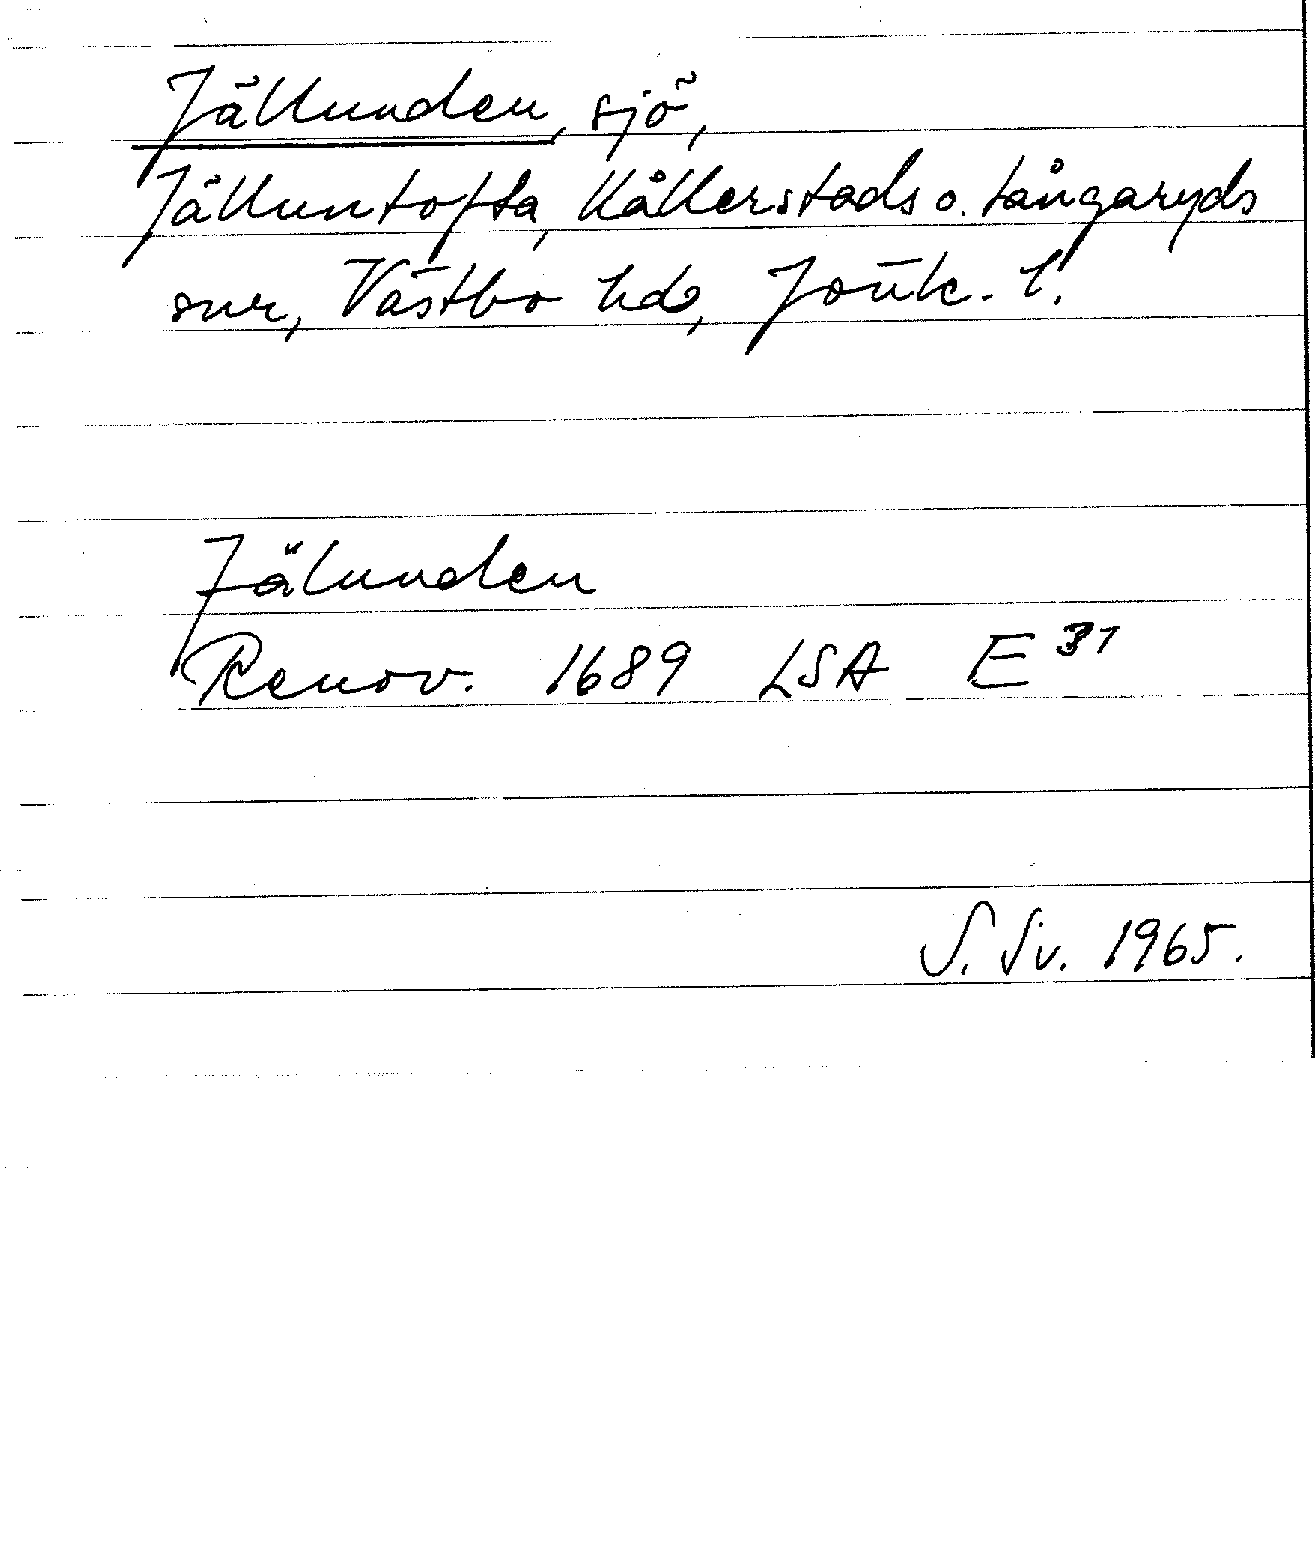 Jällunden, sjö,
Jälluntofta, Kållerstads o. Långaryds
snr, Västbo hd, Jönk. l.
Jälunden
Renov. 1689 LSA E 31
S. Sv. 1965.